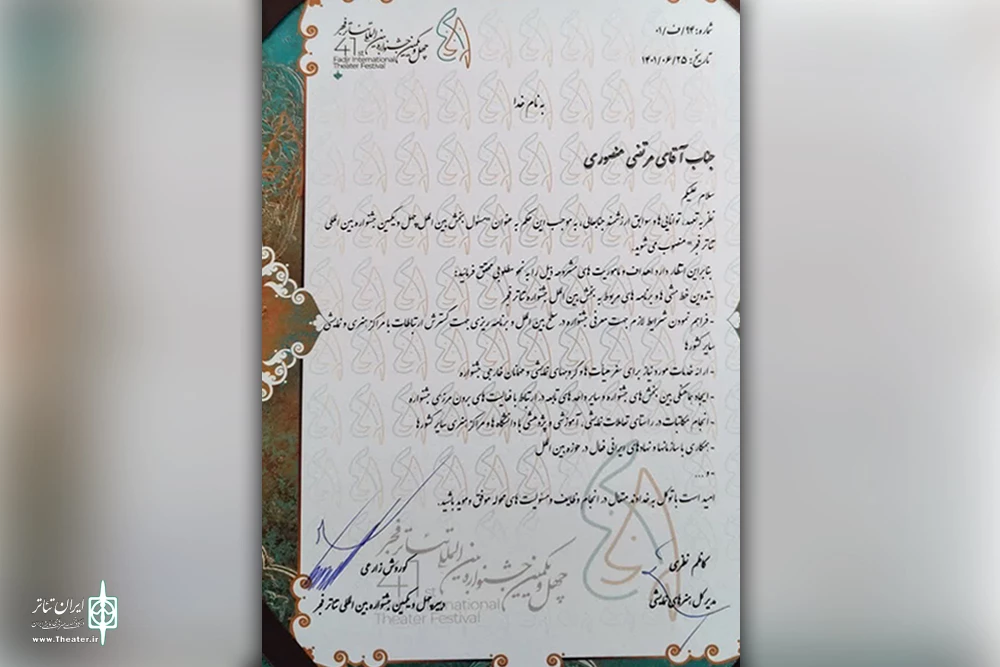 شماره: ۹۴/ف/۰۱
تاریخ: ۱۴۰۱/۰۶/۲۵
چهل و یکمین جشنواره بین المللی تئاتر فجر
41st
Fadjr International
Theater Festival
به نام خدا
جناب آقای مرتضی منصوری
سلام علیکم
نظر به تعهد، توانایی‌ها و سوابق ارزشمند جنابعالی، به موجب این حکم به عنوان «مسئول بخش بین الملل چهل و یکمین جشنواره بین المللی
تئاتر فجر» منصوب می شوید.
بنابراین انتظار دارد اهداف و ماموریت های مشروحه ذیل را به نحو مطلوبی محقق فرمائید:
-تدوین خط مشی ها و برنامه های مربوط به بخش بین الملل جشنواره تئاتر فجر
- فراهم نمودن شرایط لازم جهت معرفی جشنواره در سطح بین الملل و برنامه ریزی جهت گسترش ارتباطات با مراکز هنری و نمایشی
سایر کشورها
- ارائه خدمات مورد نیاز برای سفر هیأت ها، گروههای نمایشی و مهمانان خارجی جشنواره
- ایجاد هماهنگی بین بخش های جشنواره و سایر واحد های تابعه در ارتباط با فعالیت های برون مرزی جشنواره
- انجام مکاتبات در راستای تعاملات نمایشی، آموزشی و پژوهشی با دانشگاه ها و مراکز هنری سایر کشورها
- همکاری با سازمانها و نهادهای ایرانی فعال در حوزه بین الملل
- و ...
امید است با توکل به خداوند متعال در انجام وظایف و مسئولیت های محوله موفق و موید باشید.
کاظم نظری
مدیرکل هنرهای نمایشی
کوروش زارعی
دبیر چهل و یکمین جشنواره بین المللی تئاتر فجر
چهل و یکمین جشنواره بین المللی تئاتر فجر
41st
International
Theater Festival
ایران تئاتر
www.Theater.ir